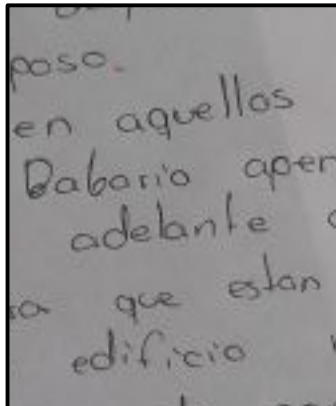 poso.
en aquellos
Dabario
adelante
que estan
edificio